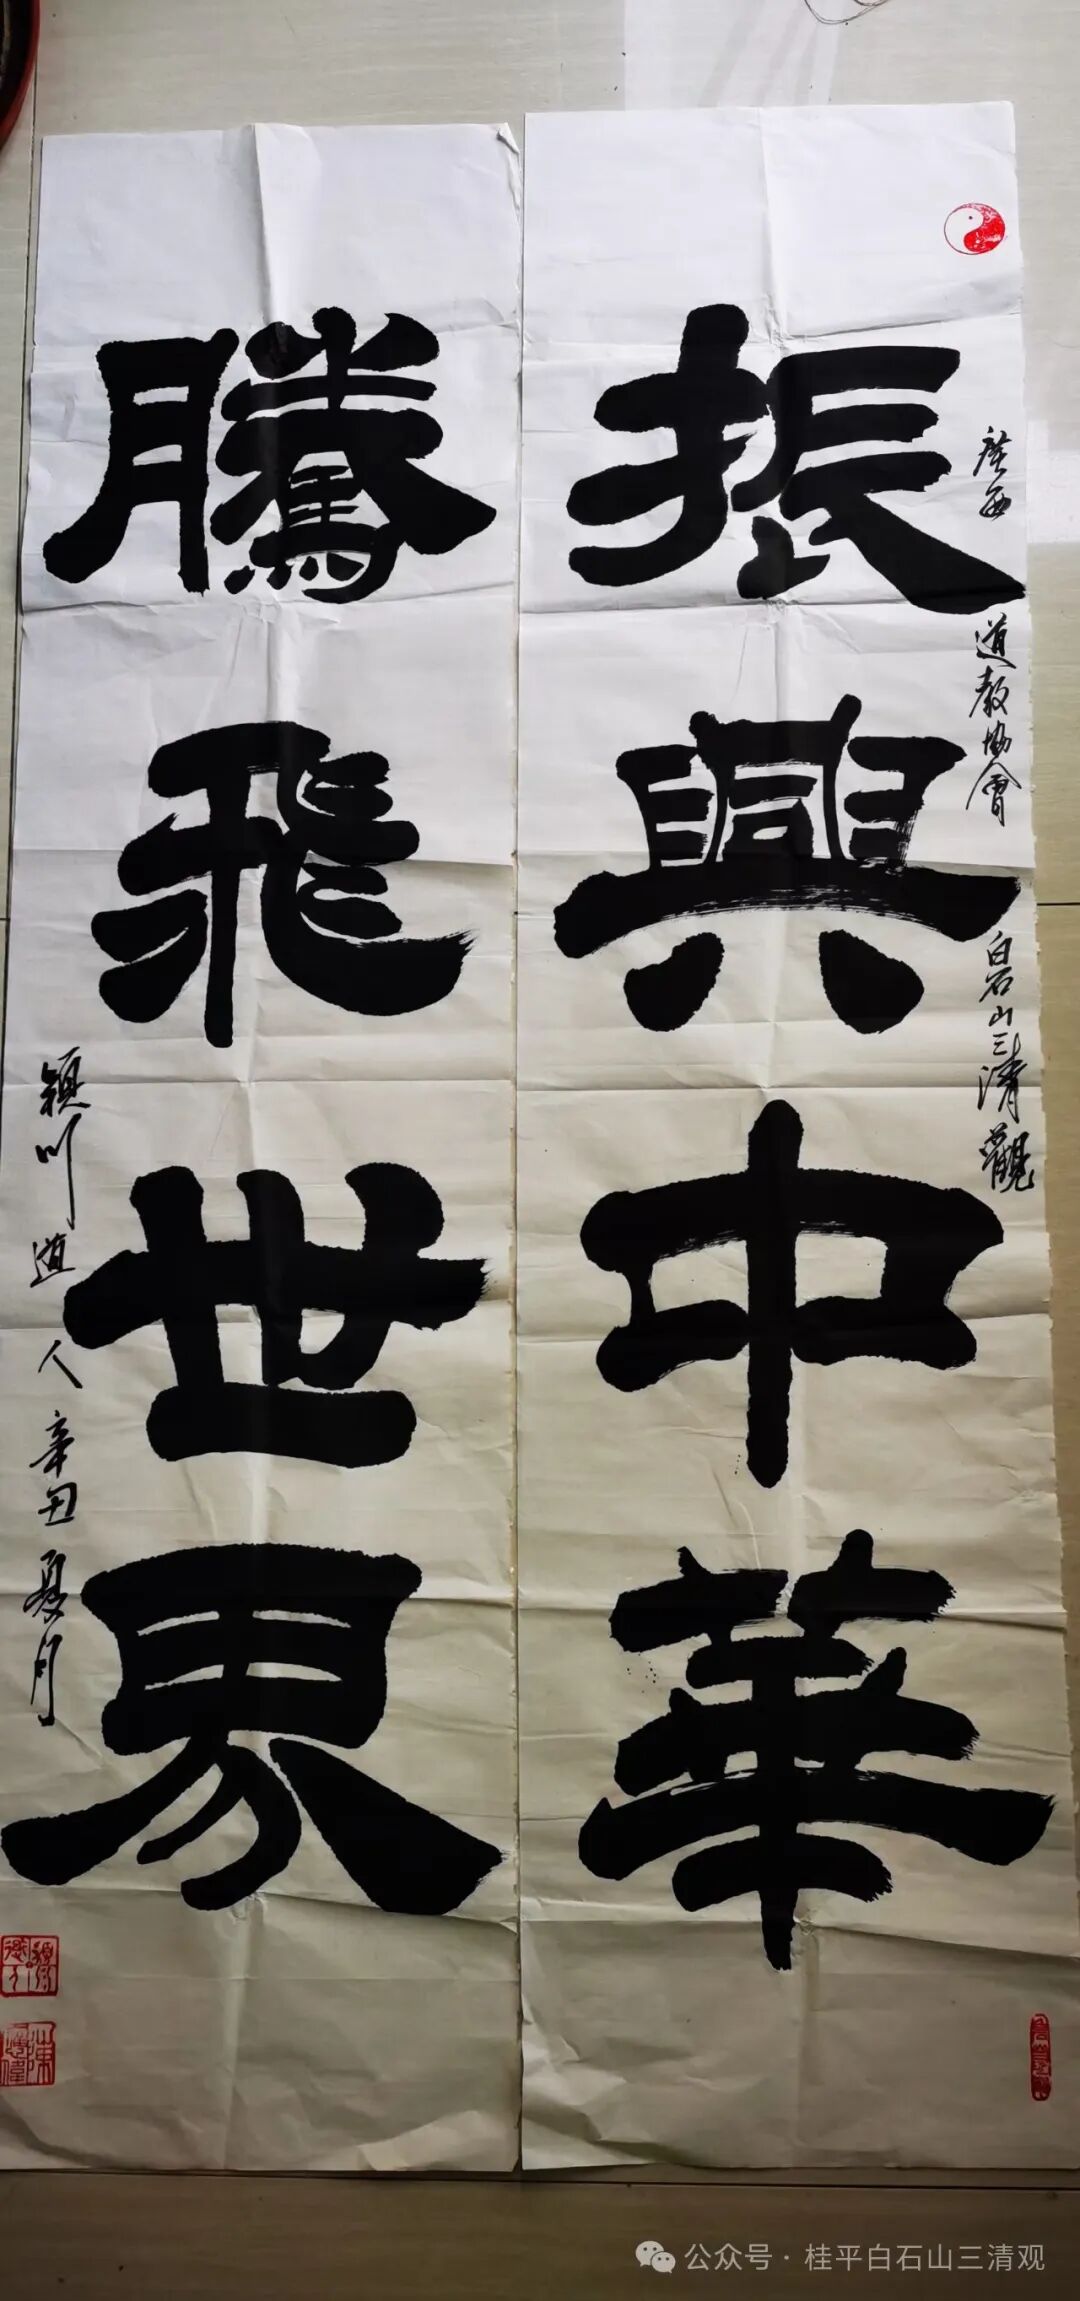 振興中華
廣西道教協會白石山三清觀
騰飛世界
潁川道人辛丑夏月
公众号·桂平白石山三清观